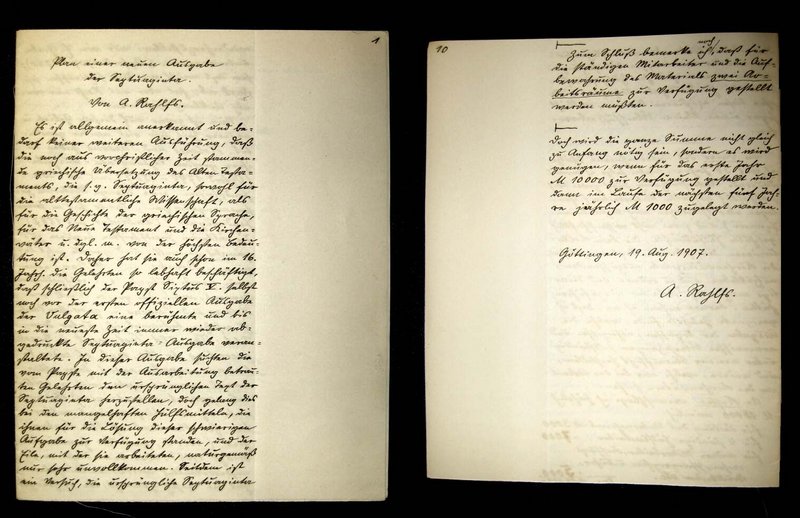 1
Plan einer neuen Ausgabe
der Septuaginta.
Von A. Rahlfs.
Es ist allgemein anerkannt und be-
darf keiner weiteren Ausführung, daß
die noch aus vorchristlicher Zeit stammen-
de griechische Übersetzung des Alten Testa-
ments, die s. g. Septuaginta, sowohl für
die alttestamentliche Wissenschaft, als
für die Geschichte der griechischen Sprache,
für das Neue Testament und die Kirchen-
väter u. dgl. m. von der höchsten Bedeu-
tung ist. Daher hat sie auch schon im 16.
Jahrh. die Gelehrten so lebhaft beschäftigt,
daß schließlich der Papst Sixtus V. selbst
noch vor der ersten offiziellen Ausgabe
der Vulgata eine berühmte und bis
in die neueste Zeit immer wieder ab-
gedruckte Septuaginta-Ausgabe veran-
staltete. In dieser Ausgabe suchten die
vom Papste mit der Ausarbeitung betrau-
ten Gelehrten den ursprünglichen Text der
Septuaginta herzustellen, doch gelang dies
bei den mangelhaften Hülfsmitteln, die
ihnen für die Lösung dieser schwierigen
Aufgabe zur Verfügung standen, und der
Eile, mit der sie arbeiteten, naturgemäß
nur sehr unvollkommen. Seitdem ist
ein Versuch, die ursprüngliche Septuaginta
10
Zum Schluß bemerke ich noch, daß für
die ständigen Mitarbeiter und die Auf-
bewahrung des Materials zwei Ar-
beitsräume zur Verfügung gestellt
werden müßten.
Doch wird die ganze Summe nicht gleich
zu Anfang nötig sein, sondern es wird
genügen, wenn für das erste Jahr
M 10000 zur Verfügung gestellt und
dann im Laufe der nächsten fünf Jah-
re jährlich M 1000 zugelegt werden.
Göttingen, 19. Aug. 1907.
A. Rahlfs.